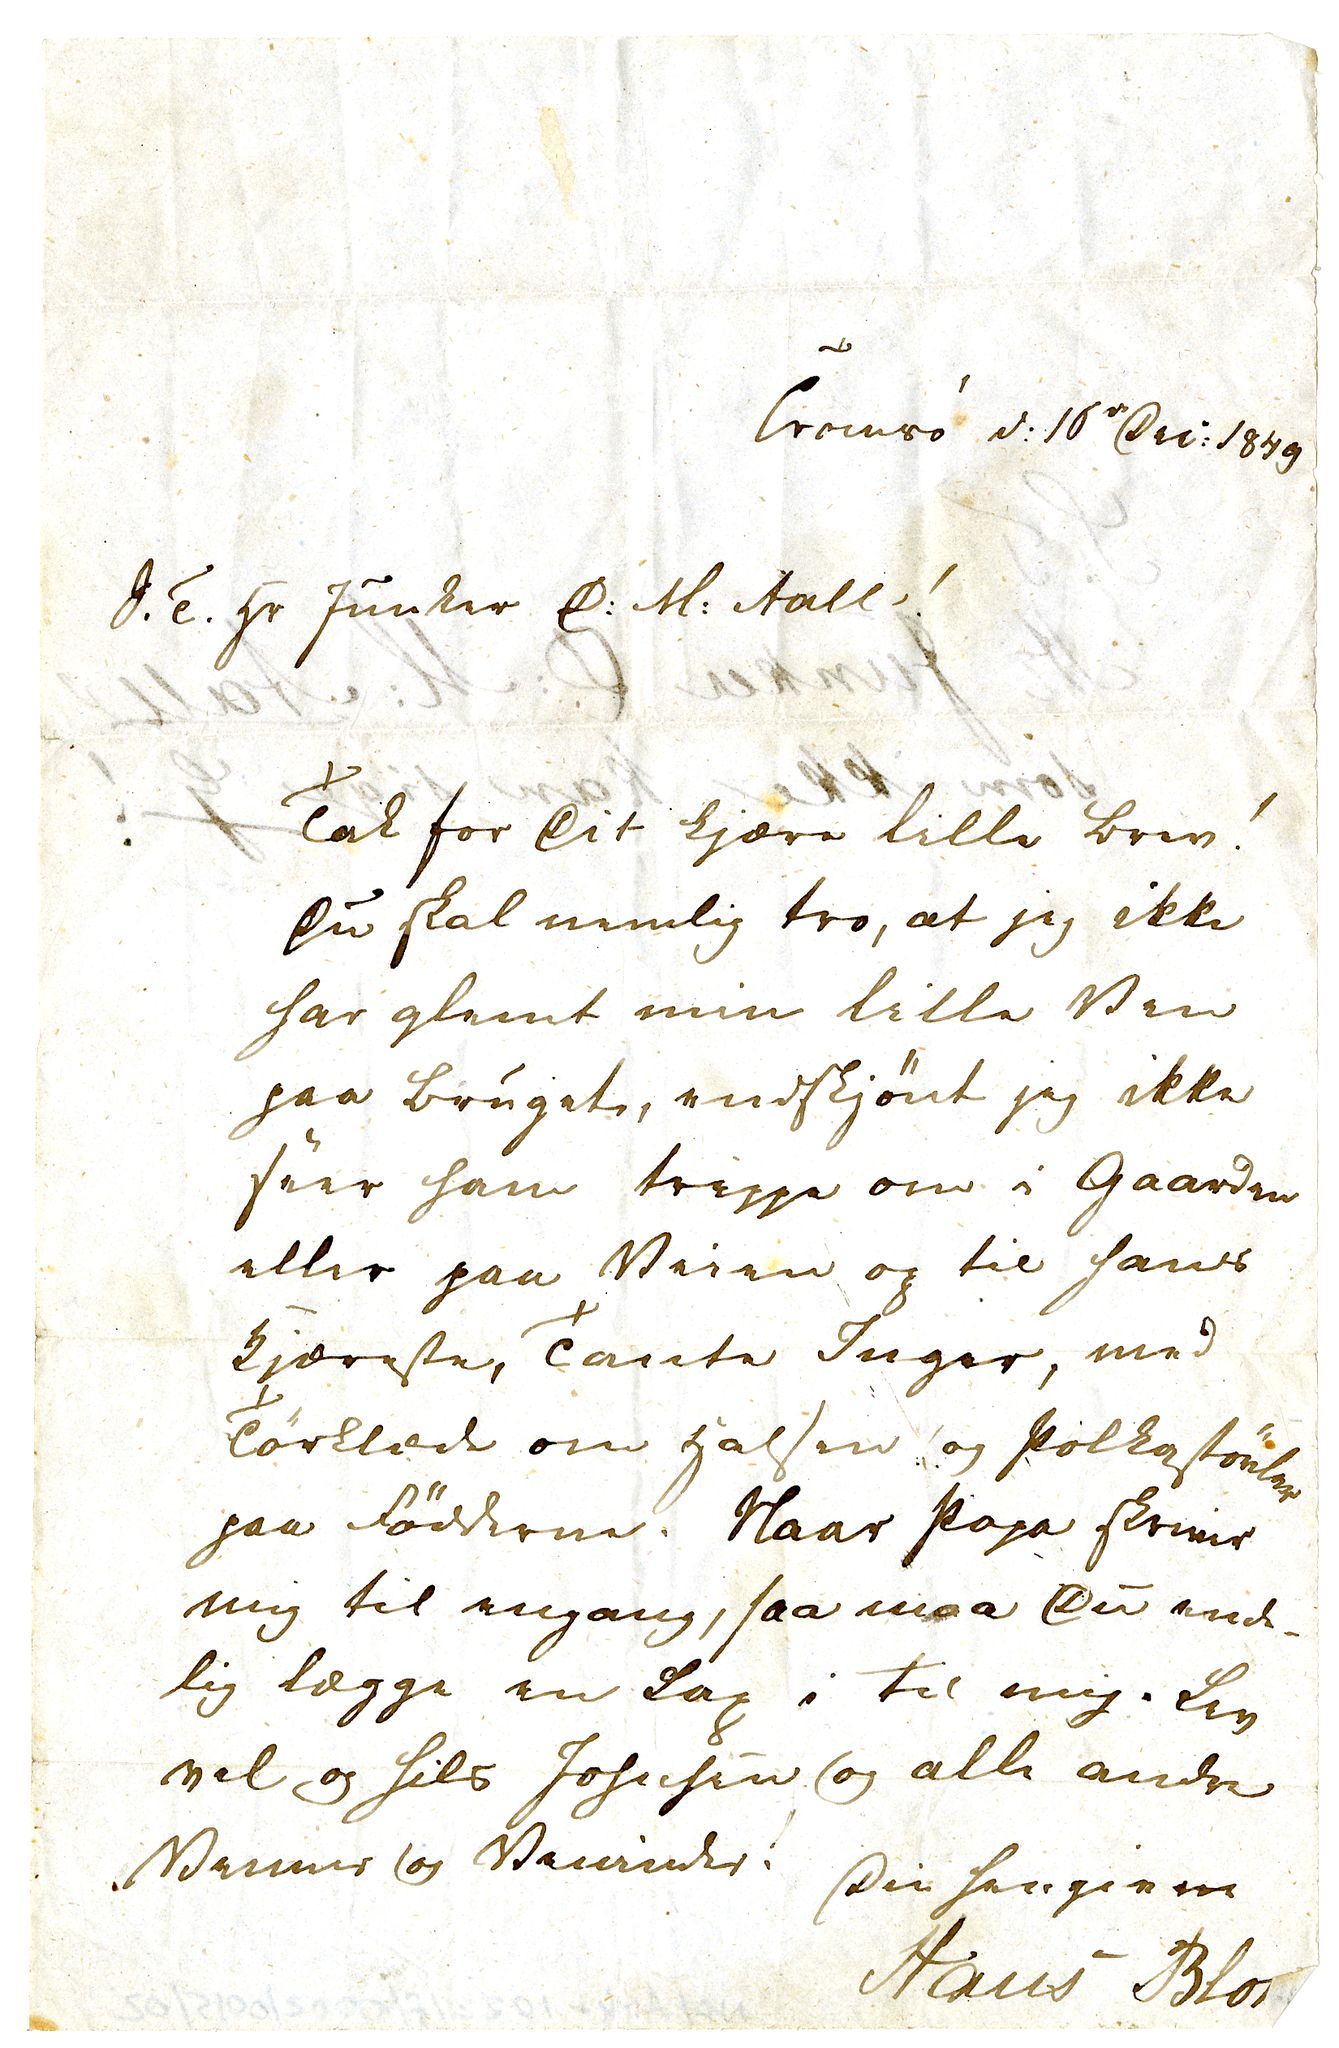 Tromsö d: 16de Dec: 1849
S. T. Hr Junker D: M: Aall!
Tak for Dit kjære lille Brev!
Du skal nemlig tro, at jeg ikke
har glemt min lille Ven
paa Bruget, endskjönt jeg ikke
seer ham trippe om i Gaarden
eller paa Veien og til hans
Kjæreste, Tante Inger, med
Törklæde om Halsen og Polkastövler
paa Födderne. Naar Papa skriver
mig til engang, saa maa Du ende-
lig lægge en Lap i til mig. Lev
vel og hils Josephin og alle andre
Venner og Veninder!
Din hengivne
Hans Blo